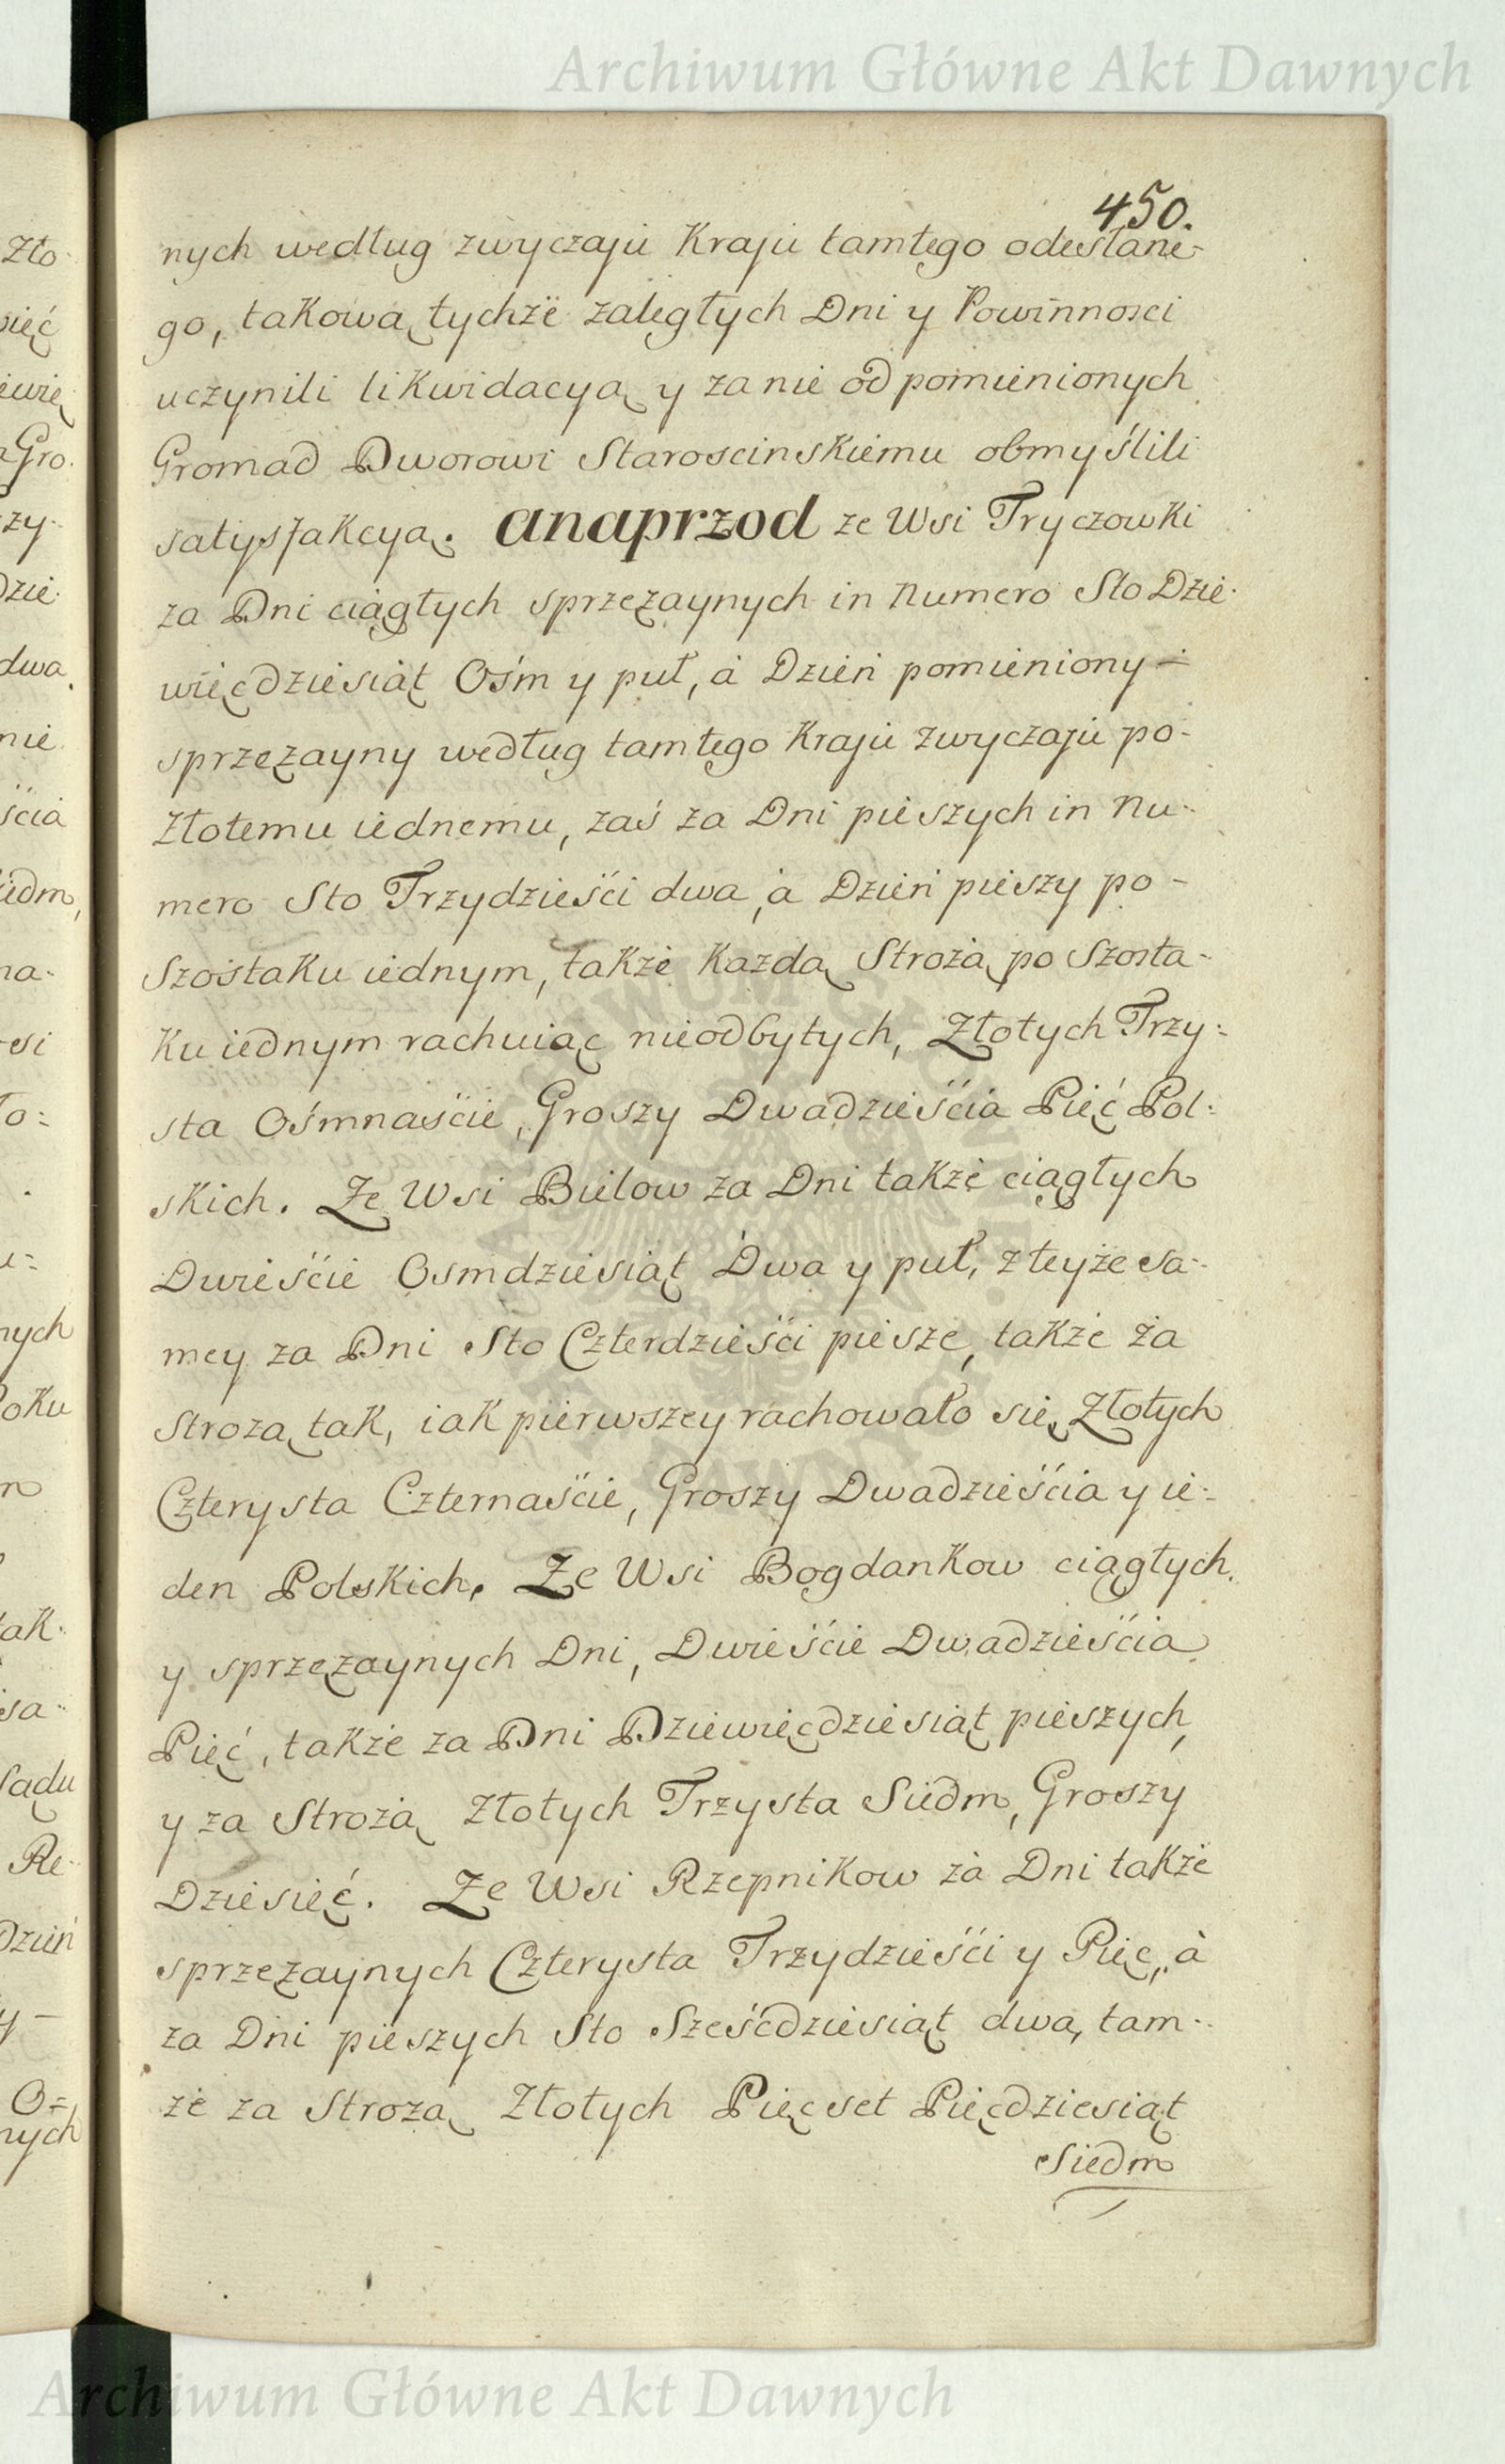 Archiwum Główne Akt Dawnych
450.
nych według zwyczaju Kraju tamtego odesłane-
go, takową tychże zaległych Dni y Powinnosci
uczynili likwidacyą y za nie od pomienionych
Gromad Dworowi Staroscinskiemu obmyślili
satysfakcyą. anaprzod ze Wsi Tryczowki
za Dni ciągłych sprzężaynych in Numero Sto Dzie-
więcdziesiąt Ośm y puł, à Dzień pomieniony -
sprzężayny według tamtego Kraju zwyczaju po-
Złotemu iednemu, zaś za Dni pieszych in Nu-
mero Sto Trzydzieści dwa, à Dzień pieszy po -
Szostaku iednym, także Kazdą Strożą po Szosta-
Ku iednym rachuiąc nieodbytych, Złotych Trzy-
sta Ośmnaście, Groszy Dwadzieścia Pięć Pol-
skich. Ze Wsi Bielow za Dni także ciągłych
Dwieście Osmdziesiąt Dwa y puł, z teyże sa-
mey za Dni Sto Czterdzieści piesze, także za
Strozą tak, iak pierwszey rachowało się Złotych
Czterysta Czternaście, Groszy Dwadzieścia y ie-
den Polskich. Ze Wsi Bogdankow ciągłych
y sprzężaynych Dni, Dwieście Dwadzieścia
Pięć, także za Dni Dziewięcdziesiąt pieszych,
y za Strożą Złotych Trzysta Siedm, Groszy
Dziesięć. Ze Wsi Rzepnikow za Dni także
sprzężaynych Czterysta Trzydzieści y Pięc, à
za Dni pieszych Sto Sześćdziesiąt dwa, tam-
że za Strozą Złotych Pięcset Pięcdziesiąt
Siedm
Zło-
więć
Gro-
zy-
dzie-
dwa
nie
ścia
iedm,
na-
si
ło-
nych
oku
m
ak-
sa-
sądu
Re-
Dzień
y -
O-
nych
Archiwum Główne Akt Dawnych